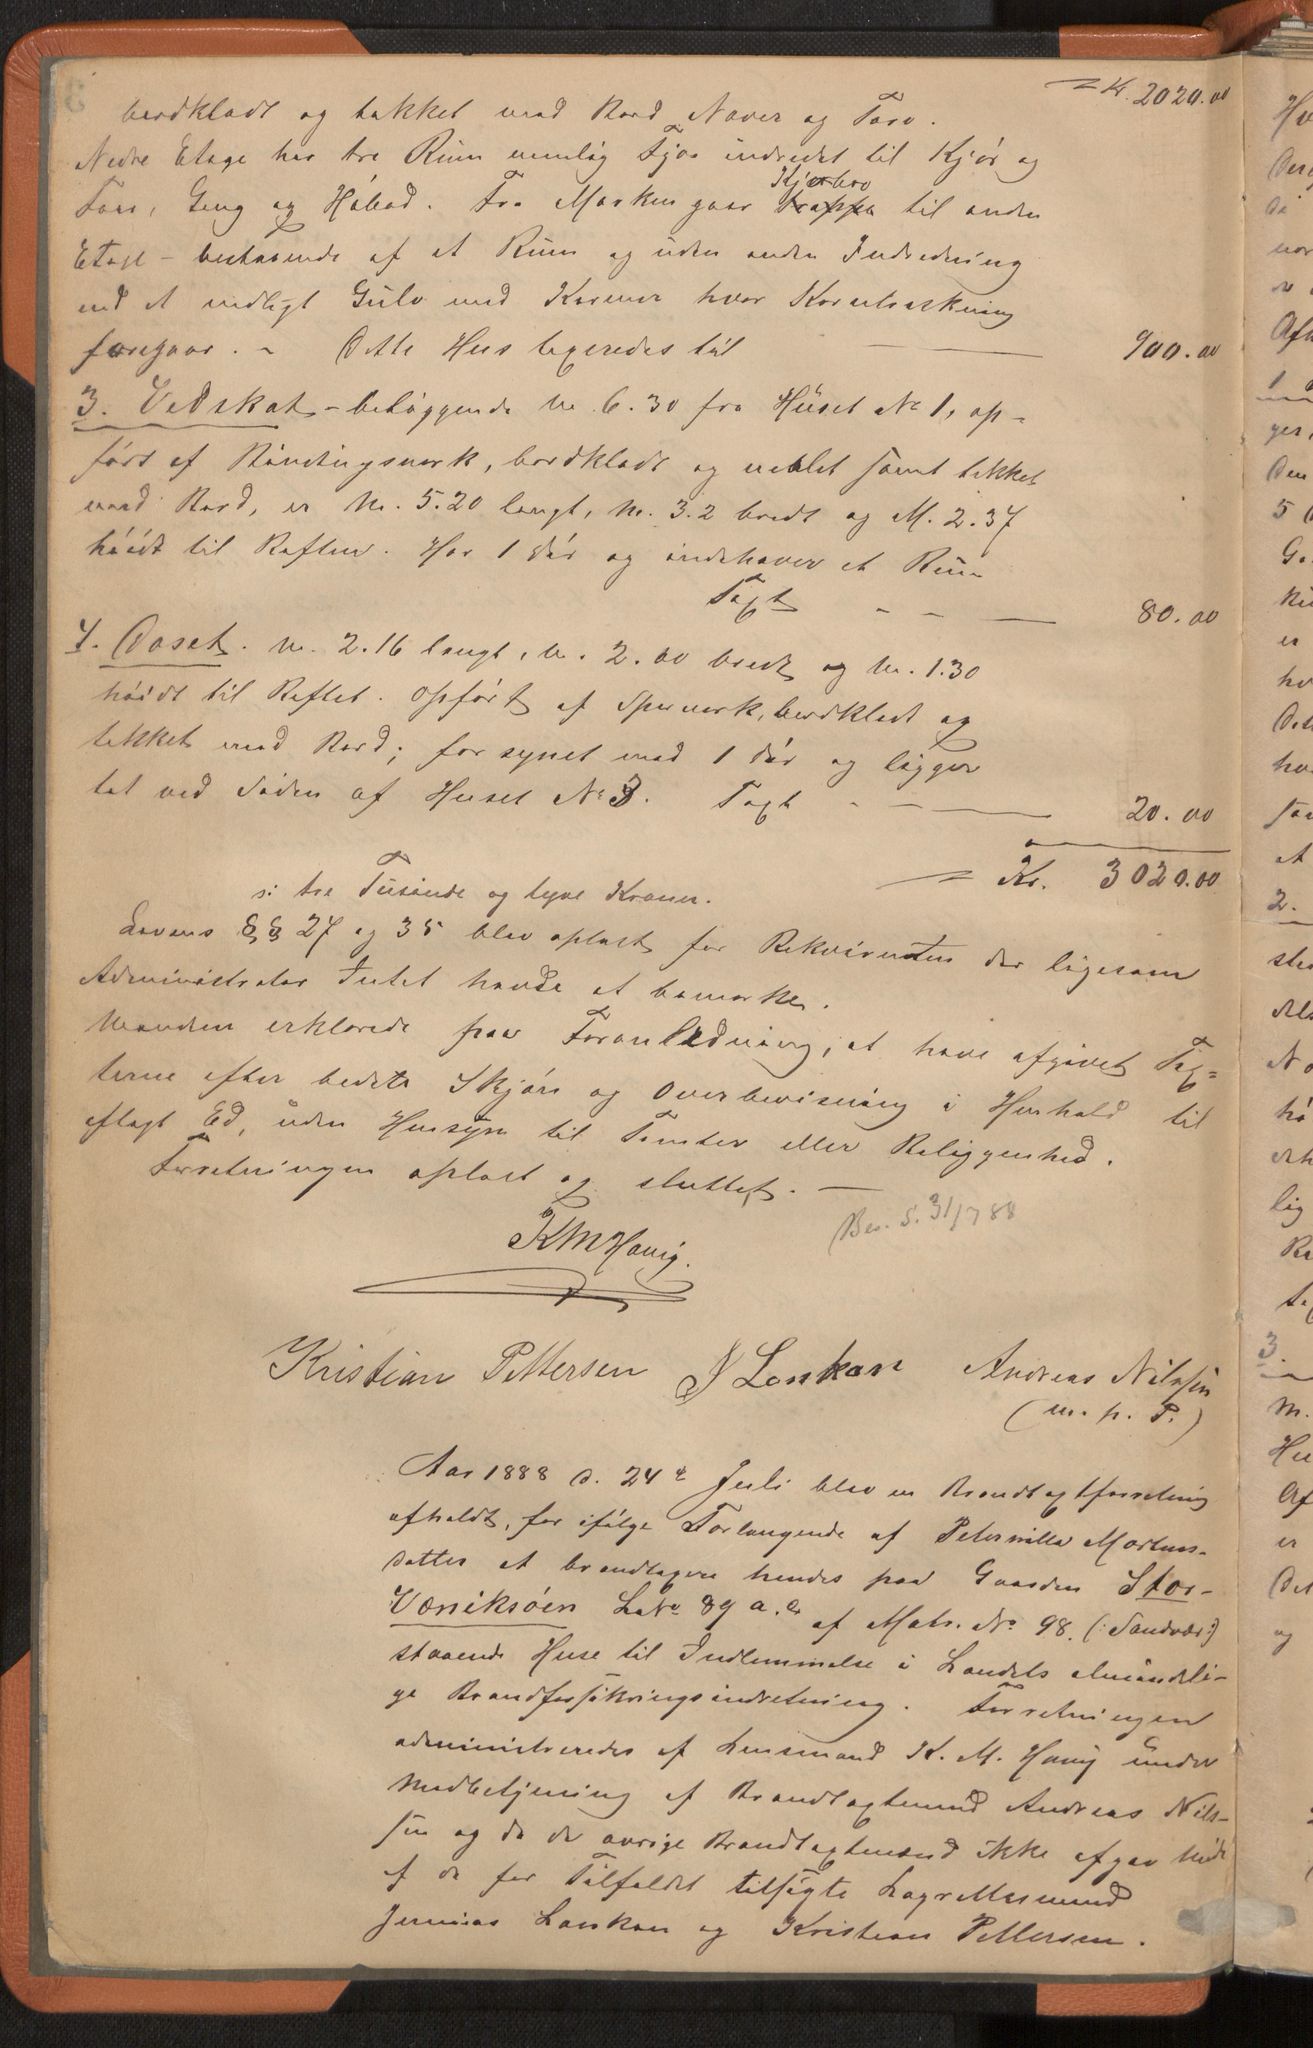 = Kr. 2020.00
bordklædt og tækket med Bord Næver og Torv.
Nedre Etage har tre Rum nemlig Fjøs indredet til Kjør og
Faar, Gang og Høbod. Fra Marken gaar Kjørbro til anden
Etage - bestaaende af et Rum og uden anden Indredning
end et vedligt Gulv med Karmer hvor Korntærskning
foregaar. - Dette Hus taxeredes til — 900.00
3. Vedskot - beliggende M. 6.30 fra Huset No 1, op-
ført af Bindingsverk, bordklædt og malet samt tækket
med Bord, er M. 5.20 langt, M. 3.2 bredt og M. 2.37
høidt til Raften. Har 1 Dør og indehaver et Rum
Taxt - - — 80.00
4. Doset. M. 2.16 langt, M. 2.00 bredt og M. 1.30
høidt til Raftet. Opført af Sperverk, bordklædt og
tækket med Bord; forsynet med 1 Dør og ligger
tæt ved Siden af Huset No 3. Taxt - — 20.00
= Kr. 3020.00
s: tre Tusinde og tyve Kroner.
Lovens §§ 27 og 35 blev oplæst for Rekvirenten der ligesom
Administrator Intet havde at bemærke.
Mændene erklærede paa Foranledning, at have afgivet Tax-
terne efter bedste Skjøn og Overbevisning i Henhold til
aflagt Ed, uden Hensyn til Tomter eller Beliggenhed.
Forretningen oplæst og sluttet. —
Bes. S. 31/7 88
K M Havig.
Kristian Pettersen J Lonkan Andreas Nilssen
(m. p. P.)
Aar 1888 d. 24de Juli blev en Brandtaxtforretning
afholdt, for ifølge Forlangende af Peternille Mortens-
datter at brandtaxere hendes paa Gaarden Stor-
Væniksøen LNo 89 a. 2 af Matr. No 98. (: Sandvær :)
staaende Huse til Indlemmelse i Landets almindeli-
ge Brandforsikringsindretning. Forretningen
administreredes af Lensmand K. M. Havig under
Medbetjening af Brandtaxtmand Andreas Nils-
sen og da de øvrige Brandtaxtmænd ikke afgav Møde
af de for Tilfældet tilsigte Lagrettesmænd
Jermias Lonkan og Kristian Pettersen.